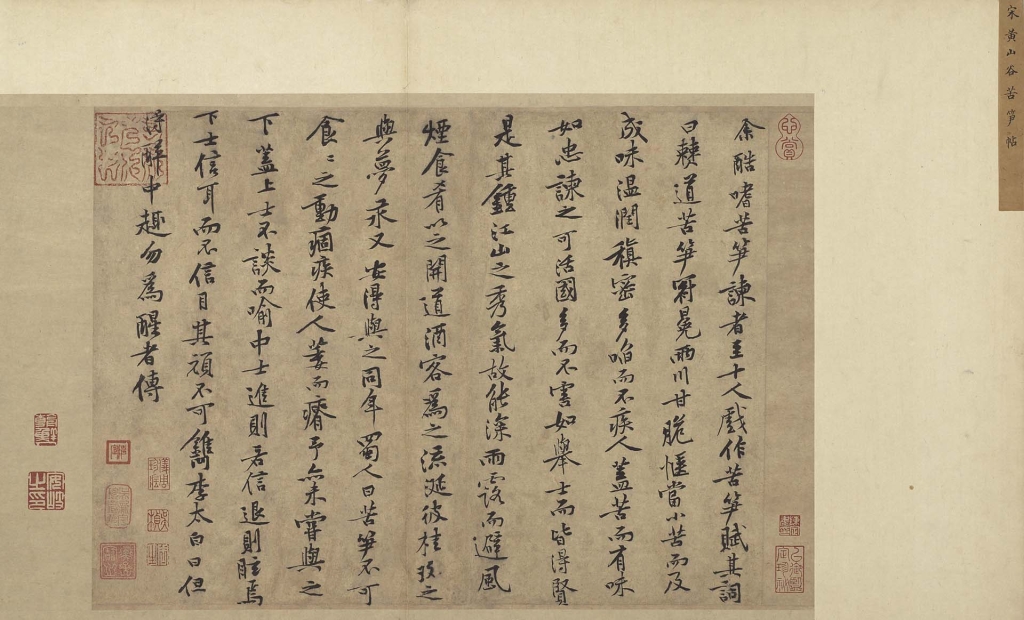 宋黃山谷苦笋帖
余酷嗜苦笋諫者至十人戲作苦笋賦其詞
曰僰道苦笋冠冕兩川甘脆愜當小苦而及
成味溫潤稹密多啗而不疾人蓋苦而有味
如忠諫之可活國多而不害如舉士而皆得賢
是其鍾江山之秀氣故能深雨露而避風
煙食肴以之開道酒客為之流涎彼桂玫之
與夢永又安得與之同年蜀人曰苦笋不可
食食之動痼疾使人萎而瘠予亦未嘗與之
下蓋上士不談而喻中士進則若信退則眩焉
下士信耳而不信目其頑不可鐫李太白曰但
得醉中趣勿為醒者傳